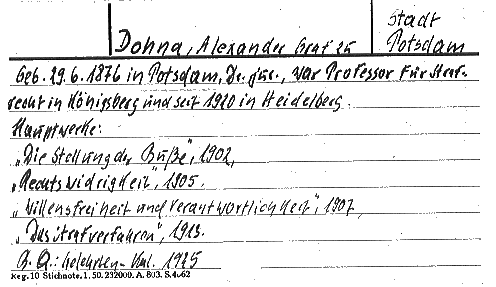 Dohna, Alexander Graf zu
Stadt
Potsdam
Geb. 29.6.1876 in Potsdam, Dr. jur., war Professor für Straf-
recht in Königsberg und seit 1920 in Heidelberg.
Hauptwerke:
„Die Stellung der Buße", 1902,
„Rechtswidrigkeit", 1905.
„Willensfreiheit und Verantwortlichkeit", 1907,
„Das Strafverfahren", 1913.
B. Q.: Gelehrten-Kal. 1925
Reg. 10 Stichnote. 1. 50. 232000. A. 803. S. 4.62